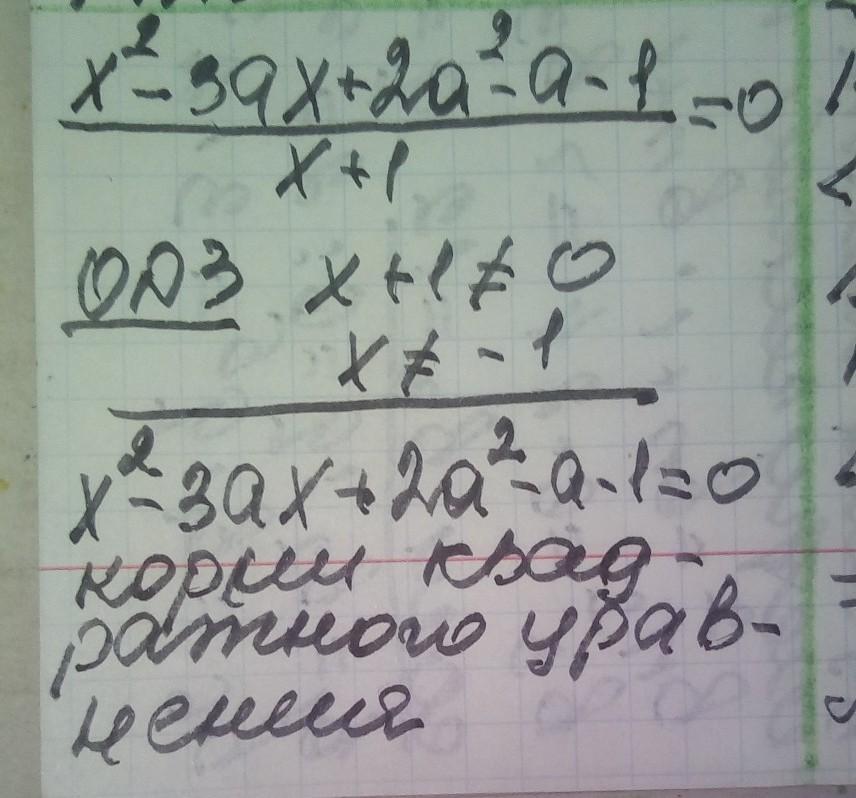 x² - 3ax + 2a² - a - 1
= 0
x + 1
ОДЗ x + 1 ≠ 0
x ≠ - 1
x² - 3ax + 2a² - a - 1 = 0
корни квад-
ратного урав-
нения